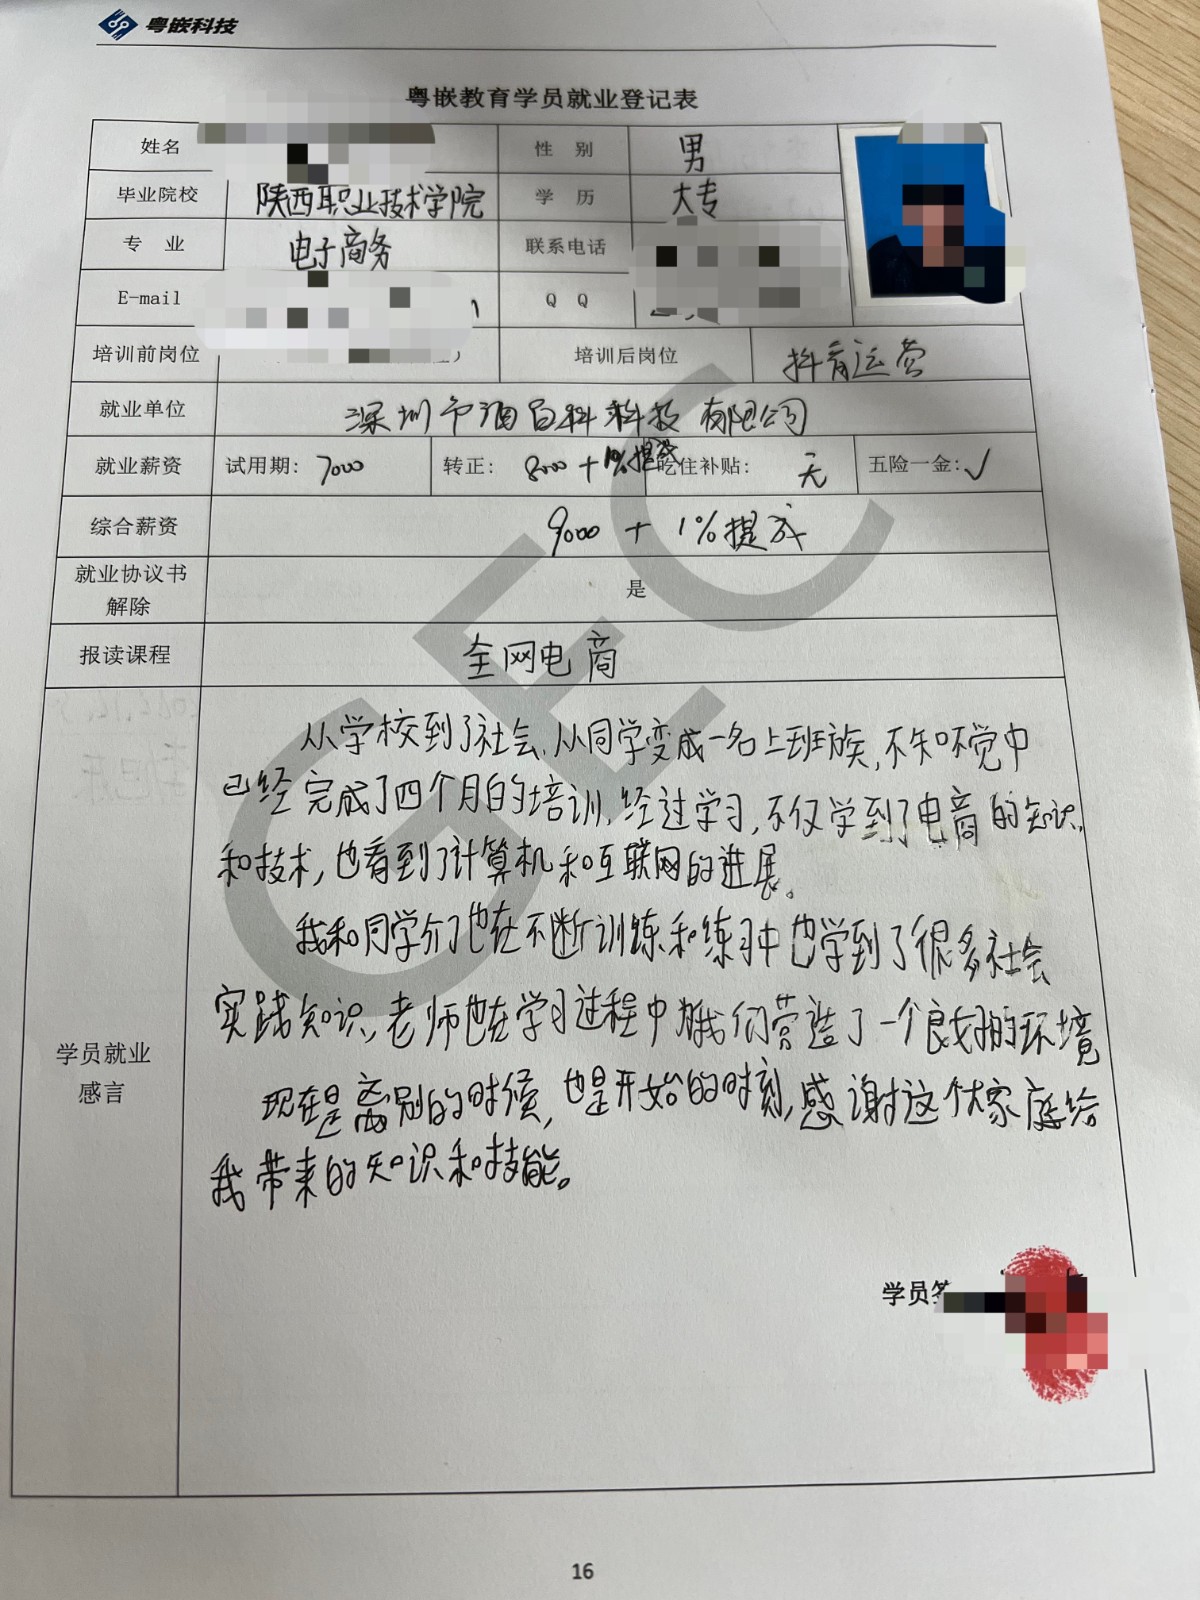 粤嵌科技
粤嵌教育学员就业登记表
姓名 性 别 男
毕业院校 陕西职业技术学院 学 历 大专
专 业 电子商务 联系电话
E-mail Q Q
培训前岗位 培训后岗位 抖音运营
就业单位 深圳市酒百科科技有限公司
就业薪资 试用期: 7000 转正: 8000 + 1%提成 吃住补贴: 无 五险一金: √
综合薪资 9000 + 1%提成
就业协议书解除 是
报读课程 全网电商
GEC
学员就业感言
从学校到了社会,从同学变成一名上班族,不知不觉中
已经完成了四个月的培训,经过学习,不仅学到了电商的知识,
和技术,也看到了计算机和互联网的进展。
我和同学们也在不断训练和练习中也学到了很多社会
实践知识,老师也在学习过程中为我们营造了一个良好的环境
现在是离别的时候,也是开始的时刻,感谢这个大家庭给
我带来的知识和技能。
学员签
16